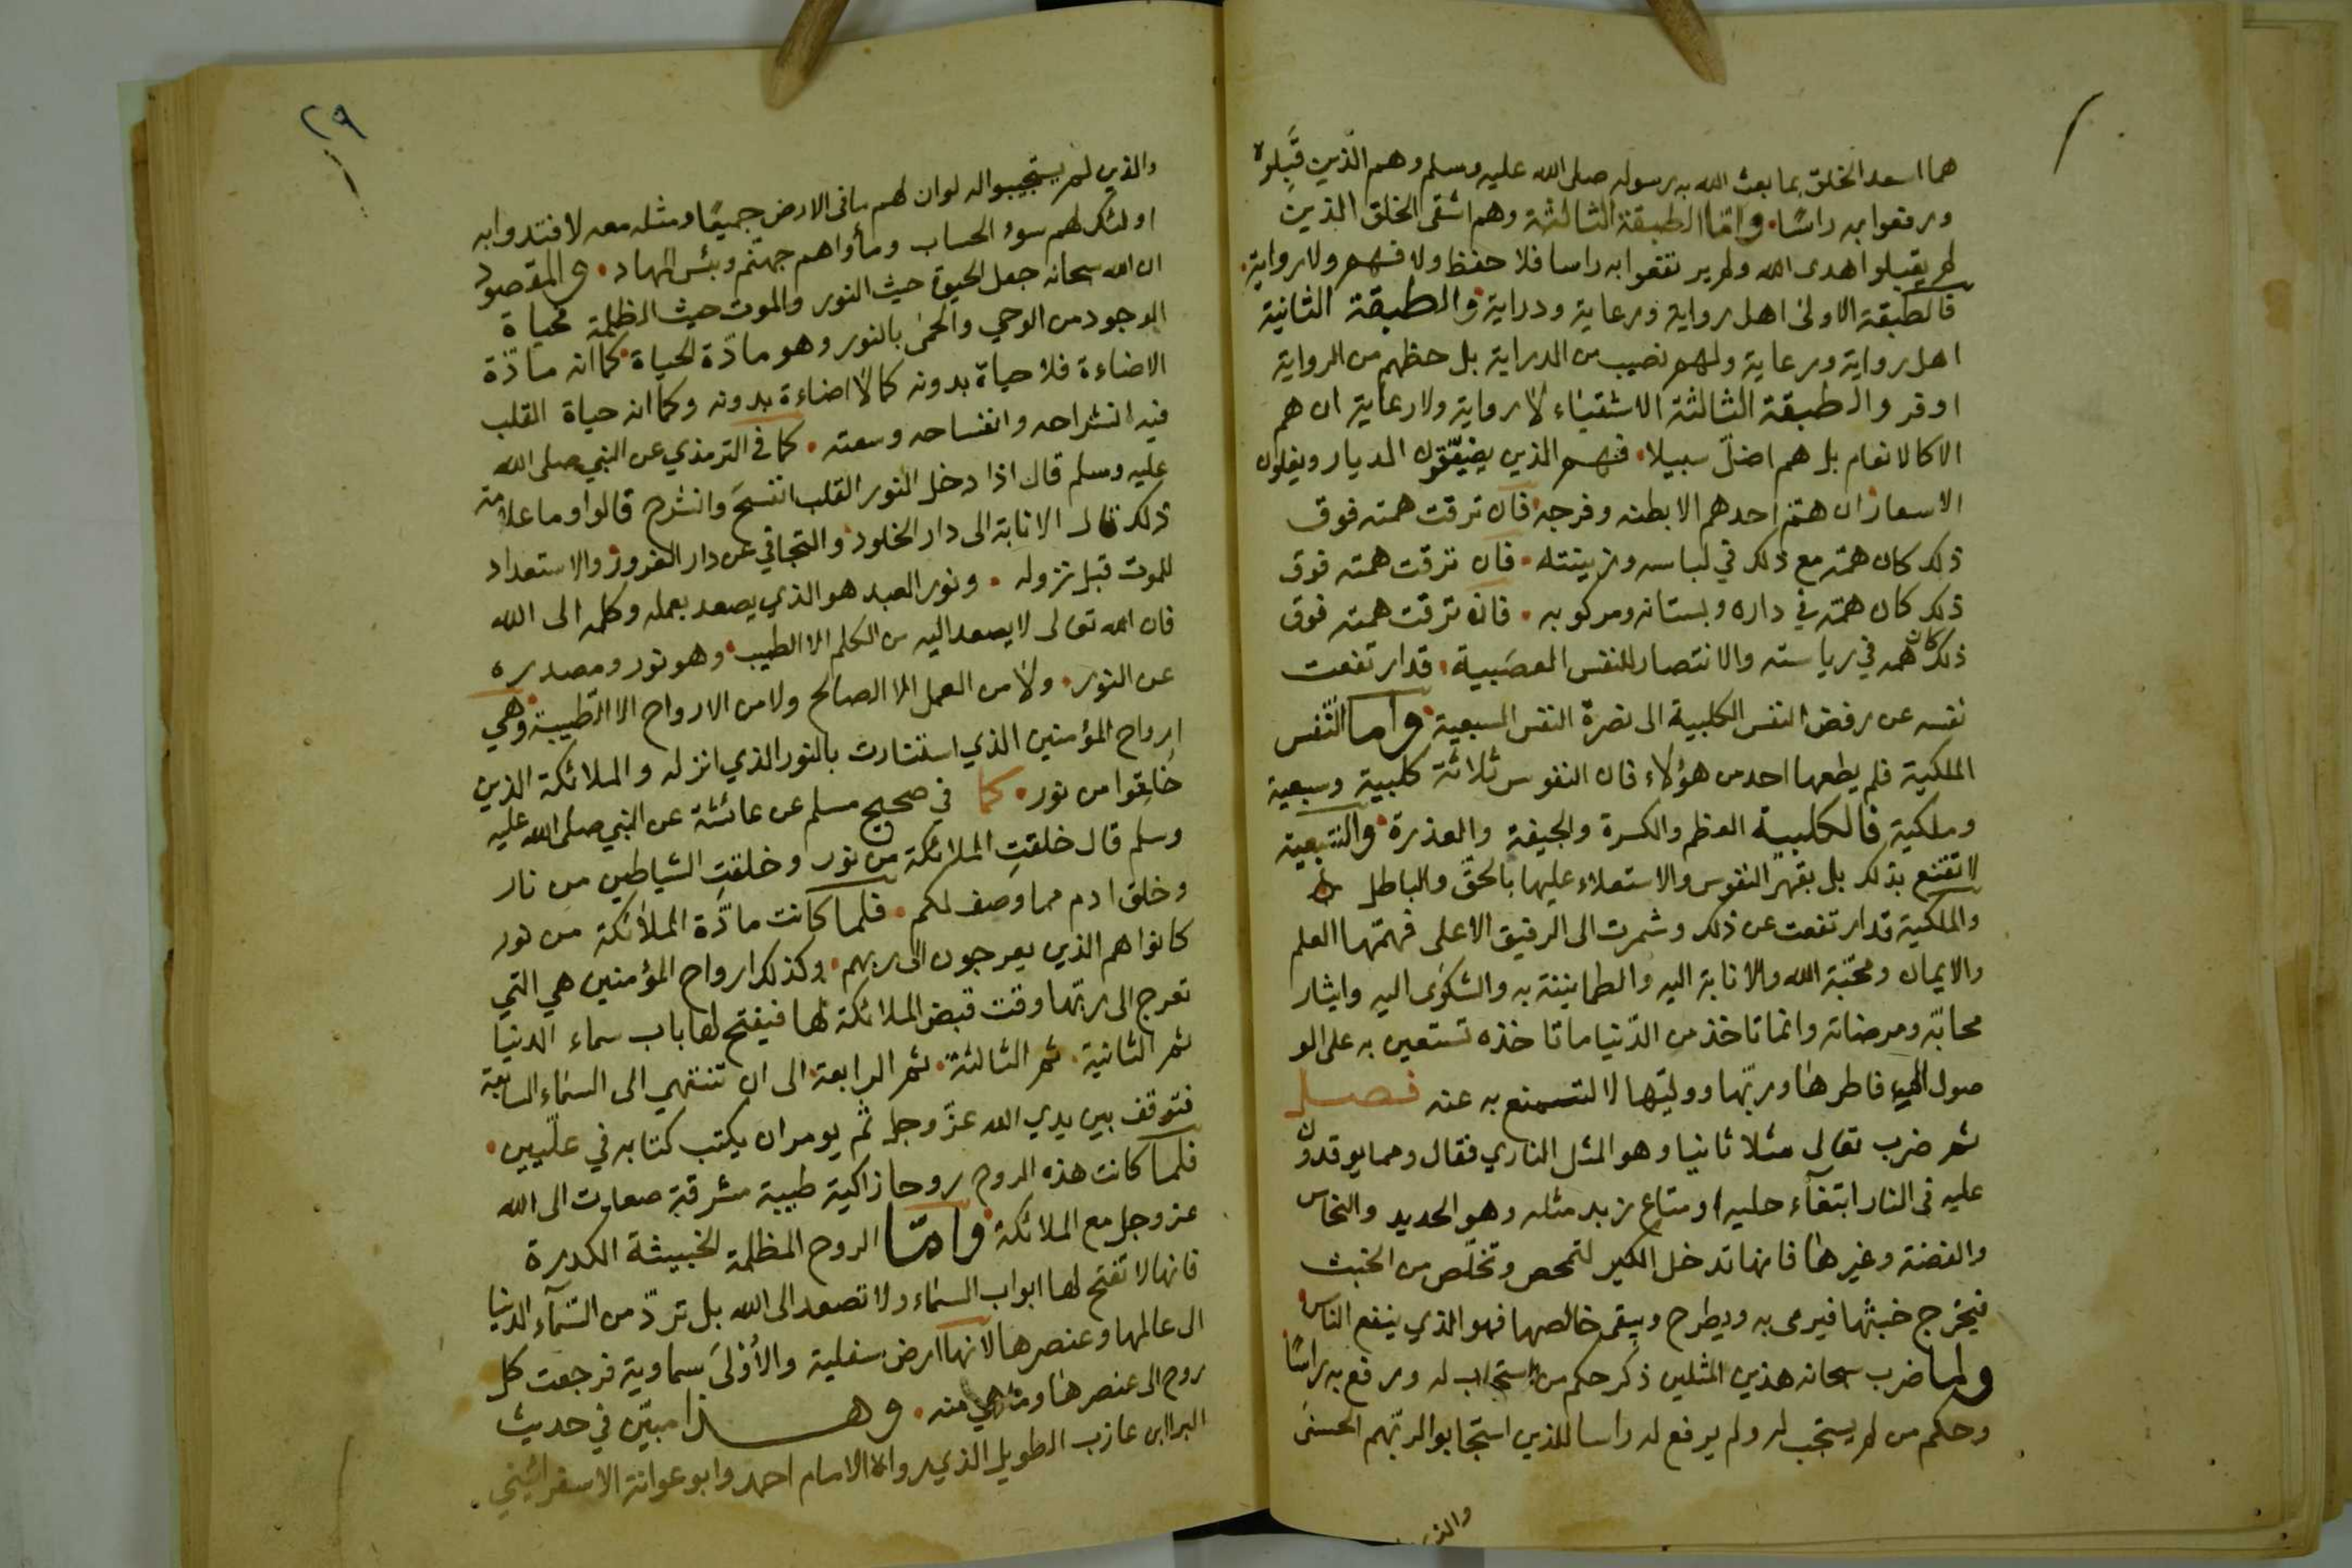 هما اسعد الخلق بما بعث الله به رسوله صلى الله عليه وسلم وهم الذين قَبِلوه
ورفعوا به راسًا. واما الطبقة الثالثة وهم اشقى الخلق الذين
لم يقبلوا هدى الله ولم يرتفعوا به راسا فلا حفظ ولا فهم ولا رواية.
فالطبقة الاولى اهل رواية ورعاية ودراية والطبقة الثانية
اهل رواية ورعاية ولهم نصيب من الدراية بل حظهم من الرواية
اوفر والطبقة الثالثة الاشقياء لا رواية ولا رعاية ان هم
الا كالانعام بل هم اضلّ سبيلا. فهم الذين يضيّقون الديار ويغلون
الاسعار ان همّ احدهم الا بطنه وفرجه فان ترقت همته فوق
ذلك كان همّه مع ذلك في لباسه وزينته. فان ترقت همته فوق
ذلك كان همّه في داره وبستانه ومركوبه. فان ترقت همته فوق
ذلك كان همه في رياسته والانتصار للنفس العصَبية. قد ارتفعت
نفسه عن رفض النفس الكلبية الى نصرة النفس السبعية واما النّفس
الملكية فلم يطعها احد من هؤلاء فان النفوس ثلاثة كلبية وسبعية
وملكية فالكلبية العظم والكسرة والجيفة والعذرة والسبعية
لا تقنع بذلك بل بقهر النفوس والاستعلاء عليها بالحقّ والباطل
والملكية قد ارتفعت عن ذلك وشمرت الى الرفيق الاعلى فهمّتها العلم
والايمان ومحبّة الله والانابة اليه والطمانينة به والشكوى اليه وايثار
محابّه ومرضاته وانما تاخذ من الدّنيا ما تاخذه تستعين به على الو
صول الى فاطرها وربّها ووليّها لا لتسمتع به عنه فصل
ثم ضرب تعالى مثلا ثانيا وهو المثل الناري فقال ومما يوقدون
عليه فى النار ابتغآء حلية او متاع زبد مثله وهو الحديد والنحاس
والفضة وغيرها فانها تدخل الكير لتمحص وتخلّص من الخبث
فيخرج خبثها فيرمى به ويطرح ويبقى خالصها فهو الذي ينفع الناس.
ولما ضرب سبحانه هذين المثلين ذكر حكم من استجاب له ورفع به راسًا
وحكم من لم يستجب له ولم يرفع له راسا للذين استجابوا لربّهم الحسنى
والذين
٢٩
والذين لم يستجيبوا له لو ان لهم ما فى الارض جميعًا ومثله معه لافتدوا به
اولئك لهم سوء الحساب ومأواهم جهنّم وبئس المهاد. والمقصود
ان الله سبحانه جعل الحيوة حيث النور والموت حيث الظلمة فحياة
الوجود من الوحي والحمى بالنور وهو مادّة الحياة كما انه مادّة
الاضاءة فلا حياة بدونه كما لا اضاءة بدونه وكما انه حياة القلب
فيه انشراحه وانفساحه وسعته. كما في الترمذي عن النبي صلى الله
عليه وسلم قال اذا دخل النور القلب انفسحَ وانشرح قالوا وما علامة
ذلك قال الانابة الى دار الخلود والتجافي عن دار الغرور والاستعداد
للموت قبل نزوله. ونور العبد هو الذي يصعد بعمله وكلمه الى الله
فان الله تعالى لا يصعد اليه من الكلم الا الطيب. وهو نور ومصدره
عن النور. ولا من العمل الا الصالح ولا من الارواح الا الطيبة وهي
ارواح المؤمنين الذي استنارت بالنور الذي انزله والملائكة الذين
خُلقوا من نور. كما في صحيح مسلم عن عائشة عن النبي صلى الله عليه
وسلم قال خلقتِ الملائكة من نور وخلقتِ الشياطين من نار
وخلق ادم مما وصف لكم. فلما كانت مادّة الملائكة من نور
كانوا هم الذي يعرجون الى ربهم. وكذلك ارواح المؤمنين هي التي
تعرج الى ربّها وقت قبض الملائكة لها فيفتح لها باب سماء الدنيا
ثم الثانية. ثم الثالثة. ثم الرابعة. الى ان تنتهي الى السماء السابعة
فتوقف بين يدي الله عزّ وجل ثم يومر ان يكتب كتابه في علّيين.
فلما كانت هذه الروح روحا زاكية طيبة مشرقة صعدت الى الله
عز وجل مع الملائكة وامّا الروح المظلمة الخبيثة الكدرة
فانها لا تفتح لها ابواب السماء ولا تصعد الى الله بل تردّ من السّمآء الدنيا
الى عالمها وعنصرها لانها ارض سفلية والأولى سماوية فرجعت كل
روح الى عنصرها وما هي منه. وهذا مبيّن في حديث
البرا ابن عازب الطويل الذي رواه الامام احمد وابو عوانة الاسفرائيني